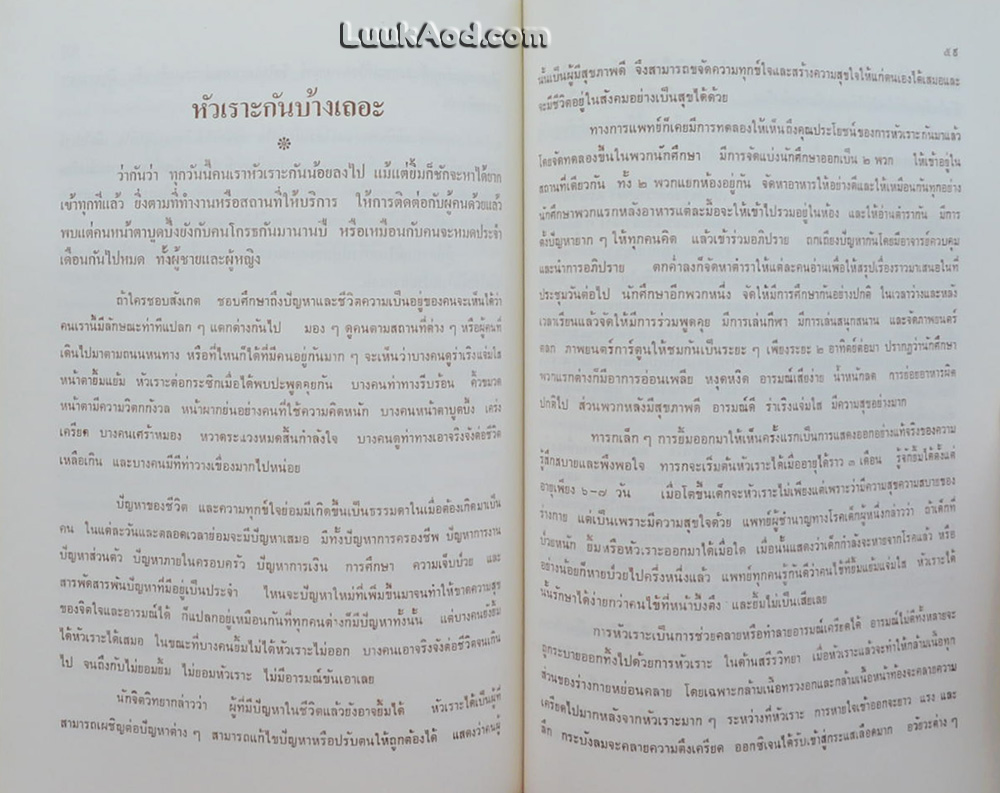 LuukAod.com
หัวเราะกันบ้างเถอะ
ว่ากันว่า ทุกวันนี้คนเราหัวเราะกันน้อยลงไป แม้แต่ยิ้มก็ชักจะหาได้ยาก
เข้าทุกทีแล้ว ยิ่งตามที่ทำงานหรือสถานที่ให้บริการ ให้การติดต่อกับผู้คนด้วยแล้ว
พบแต่คนหน้าตาบูดบึ้งยังกับคนโกรธกันมานานปี หรือเหมือนกับคนจะหมดประจำ
เดือนกันไปหมด ทั้งผู้ชายและผู้หญิง
ถ้าใครชอบสังเกต ชอบศึกษาถึงปัญหาและชีวิตความเป็นอยู่ของคนจะเห็นได้ว่า
คนเรานี้มีลักษณะท่าทีแปลก ๆ แตกต่างกันไป มอง ๆ ดูคนตามสถานที่ต่าง ๆ หรือผู้คนที่
เดินไปมาตามถนนหนทาง หรือที่ไหนก็ได้ที่มีคนอยู่กันมาก ๆ จะเห็นว่าบางคนดูร่าเริงแจ่มใส
หน้าตายิ้มแย้ม หัวเราะต่อกระซิกเมื่อได้พบปะพูดคุยกัน บางคนท่าทางรีบร้อน คิ้วขมวด
หน้าตามีความวิตกกังวล หน้าผากย่นอย่างคนที่ใช้ความคิดหนัก บางคนหน้าตาบูดบึ้ง เคร่ง
เครียด บางคนเศร้าหมอง หวาดระแวงหมดสิ้นกำลังใจ บางคนดูท่าทางเอาจริงจังต่อชีวิต
เหลือเกิน และบางคนมีทีท่าวางเขื่องมากไปหน่อย
ปัญหาของชีวิต และความทุกข์ใจย่อมมีเกิดขึ้นเป็นธรรมดาในเมื่อต้องเกิดมาเป็น
คน ในแต่ละวันและตลอดเวลาย่อมจะมีปัญหาเสมอ มีทั้งปัญหาการครองชีพ ปัญหาการงาน
ปัญหาส่วนตัว ปัญหาภายในครอบครัว ปัญหาการเงิน การศึกษา ความเจ็บป่วย และ
สารพัดสารพันปัญหาที่มีอยู่เป็นประจำ ไหนจะปัญหาใหม่ที่เพิ่มขึ้นมาจนทำให้ขาดความสุข
ของจิตใจและอารมณ์ได้ ก็แปลกอยู่เหมือนกันที่ทุกคนต่างก็มีปัญหาทั้งนั้น แต่บางคนยังยิ้ม
ได้หัวเราะได้เสมอ ในขณะที่บางคนยิ้มไม่ได้หัวเราะไม่ออก บางคนเอาจริงจังต่อชีวิตจนเกิน
ไป จนถึงกับไม่ยอมยิ้ม ไม่ยอมหัวเราะ ไม่มีอารมณ์ขันเอาเลย
นักจิตวิทยากล่าวว่า ผู้ที่มีปัญหาในชีวิตแล้วยังอาจยิ้มได้ หัวเราะได้เป็นผู้ที่
สามารถเผชิญต่อปัญหาต่าง ๆ สามารถแก้ไขปัญหาหรือปรับตนให้ถูกต้องได้ แสดงว่าคนผู้
๕๕
นั้นเป็นผู้มีสุขภาพดี จึงสามารถขจัดความทุกข์ใจและสร้างความสุขใจให้แก่ตนเองได้เสมอและ
จะมีชีวิตอยู่ในสังคมอย่างเป็นสุขได้ด้วย
ทางการแพทย์ก็เคยมีการทดลองให้เห็นถึงคุณประโยชน์ของการหัวเราะกันมาแล้ว
โดยจัดทดลองขึ้นในพวกนักศึกษา มีการจัดแบ่งนักศึกษาออกเป็น ๒ พวก ให้เข้าอยู่ใน
สถานที่เดียวกัน ทั้ง ๒ พวกแยกห้องอยู่กัน จัดหาอาหารให้อย่างดีและให้เหมือนกันทุกอย่าง
นักศึกษาพวกแรกหลังอาหารแต่ละมื้อจะให้เข้าไปรวมอยู่ในห้อง และให้อ่านตำรากัน มีการ
ตั้งปัญหายาก ๆ ให้ทุกคนคิด แล้วเข้าร่วมอภิปราย ถกเถียงปัญหากันโดยมีอาจารย์ควบคุม
และนำการอภิปราย ตกค่ำลงก็จัดหาตำราให้แต่ละคนอ่านเพื่อให้สรุปเรื่องราวมาเสนอในที่
ประชุมวันต่อไป นักศึกษาอีกพวกหนึ่ง จัดให้มีการศึกษากันอย่างปกติ ในเวลาว่างและหลัง
เวลาเรียนแล้วจัดให้มีการร่วมพูดคุย มีการเล่นกีฬา มีการเล่นสนุกสนาน และจัดภาพยนตร์
ตลก ภาพยนตร์การ์ตูนให้ชมกันเป็นระยะ ๆ เพียงระยะ ๒ อาทิตย์ต่อมา ปรากฏว่านักศึกษา
พวกแรกต่างก็มีอาการอ่อนเพลีย หงุดหงิด อารมณ์เสียง่าย น้ำหนักลด การย่อยอาหารผิด
ปกติไป ส่วนพวกหลังมีสุขภาพดี อารมณ์ดี ร่าเริงแจ่มใส มีความสุขอย่างมาก
ทารกเล็ก ๆ การยิ้มออกมาให้เห็นครั้งแรกเป็นการแสดงออกอย่างแท้จริงของความ
รู้สึกสบายและพึงพอใจ ทารกจะเริ่มต้นหัวเราะได้เมื่ออายุได้ราว ๓ เดือน รู้จักยิ้มได้ตั้งแต่
อายุเพียง ๖-๗ วัน เมื่อโตขึ้นเด็กจะหัวเราะไม่เพียงแต่เพราะว่ามีความสุขความสบายของ
ร่างกาย แต่เป็นเพราะมีความสุขใจด้วย แพทย์ผู้ชำนาญทางโรคเด็กผู้หนึ่งกล่าวว่า ถ้าเด็กที่
ป่วยหนัก ยิ้มหรือหัวเราะออกมาได้เมื่อใด เมื่อนั้นแสดงว่าเด็กกำลังจะหายจากโรคแล้ว หรือ
อย่างน้อยก็หายป่วยไปครึ่งหนึ่งแล้ว แพทย์ทุกคนรู้กันดีว่าคนไข้ที่ยิ้มแย้มแจ่มใส หัวเราะได้
นั้นรักษาได้ง่ายกว่าคนไข้ที่หน้าบึ้งตึง และยิ้มไม่เป็นเสียเลย
การหัวเราะเป็นการช่วยคลายหรือทำลายอารมณ์เครียดได้ อารมณ์ไม่ดีทั้งหลายจะ
ถูกระบายออกทิ้งไปด้วยการหัวเราะ ในด้านสรีรวิทยา เมื่อหัวเราะแล้วจะทำให้กล้ามเนื้อทุก
ส่วนของร่างกายหย่อนคลาย โดยเฉพาะกล้ามเนื้อทรวงอกและกล้ามเนื้อหน้าท้องจะคลายความ
เครียดไปมากหลังจากหัวเราะมาก ๆ ระหว่างที่หัวเราะ การหายใจเข้าออกจะยาว แรง และ
ลึก กระบังลมจะคลายความตึงเครียด ออกซิเจนได้รับเข้าสู่กระแสเลือดมาก อวัยวะต่าง ๆ